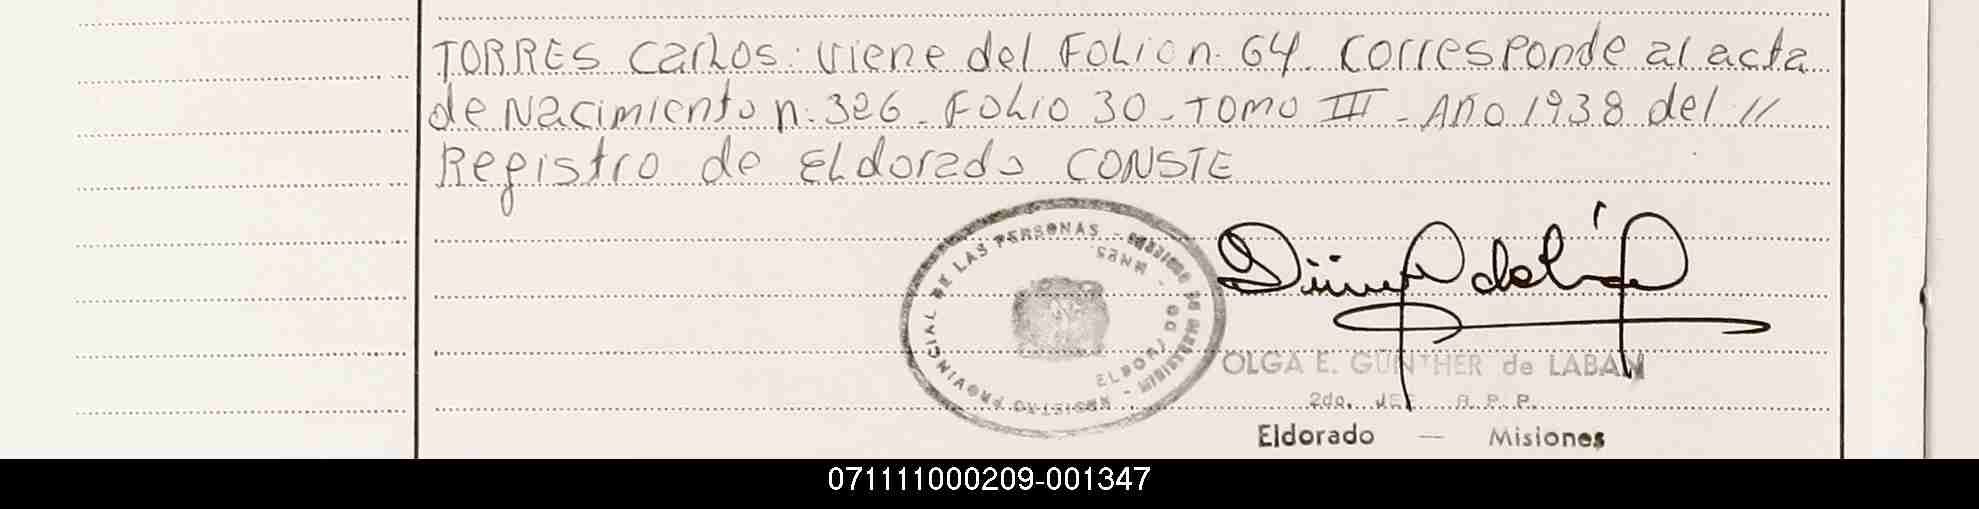 TORRES Carlos: viene del Folio n. 64. Corresponde al acta
de Nacimiento n. 326. Folio 30 - Tomo III - Año 1938 del //
Registro de Eldorado CONSTE
REGISTRO PROVINCIAL DE LAS PERSONAS -
MNES.
ELDORADO
OLGA E. GÜNTHER de LABAN
2do. JEF R. P. P.
Eldorado — Misiones
071111000209-001347